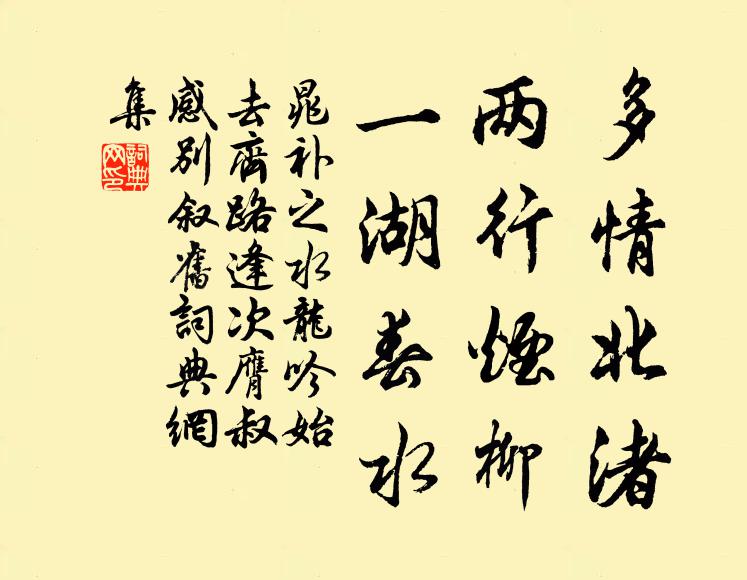 多情北渚
两行煙柳
一湖春水
晁补之水龍吟始
去齊路逢次膺叔
感别叙舊詞典網
集
詞典网印